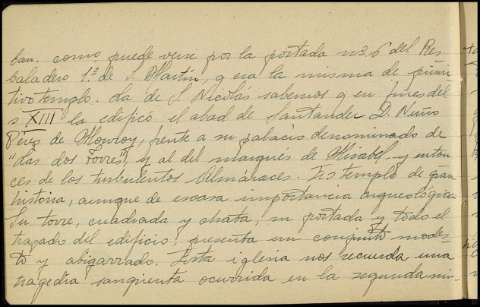 ban. como puede verse por la portada nº 6 del Res
baladero 1º de S. Martín, q era la misma de primi
tivo templo. La de S. Nicolás sabemos q en fines del
s XIII la edificó el abad de Santander D. Nuño
Pérez de Monroy, frente a su palacio denominado de
"Las dos torres", y al del marqués de Mirabel, y enton
ces de los turbulentos Almaraces. Es templo de gran
historia, aunque de escasa importancia arqueológica.
Su torre, cuadrada y chata, su portada y todo el
trazado del edificio, presenta un conjunto modes-
to y abigarrado. Esta iglesia nos recuerda una
tragedia sangrienta ocurrida en la segunda mi-